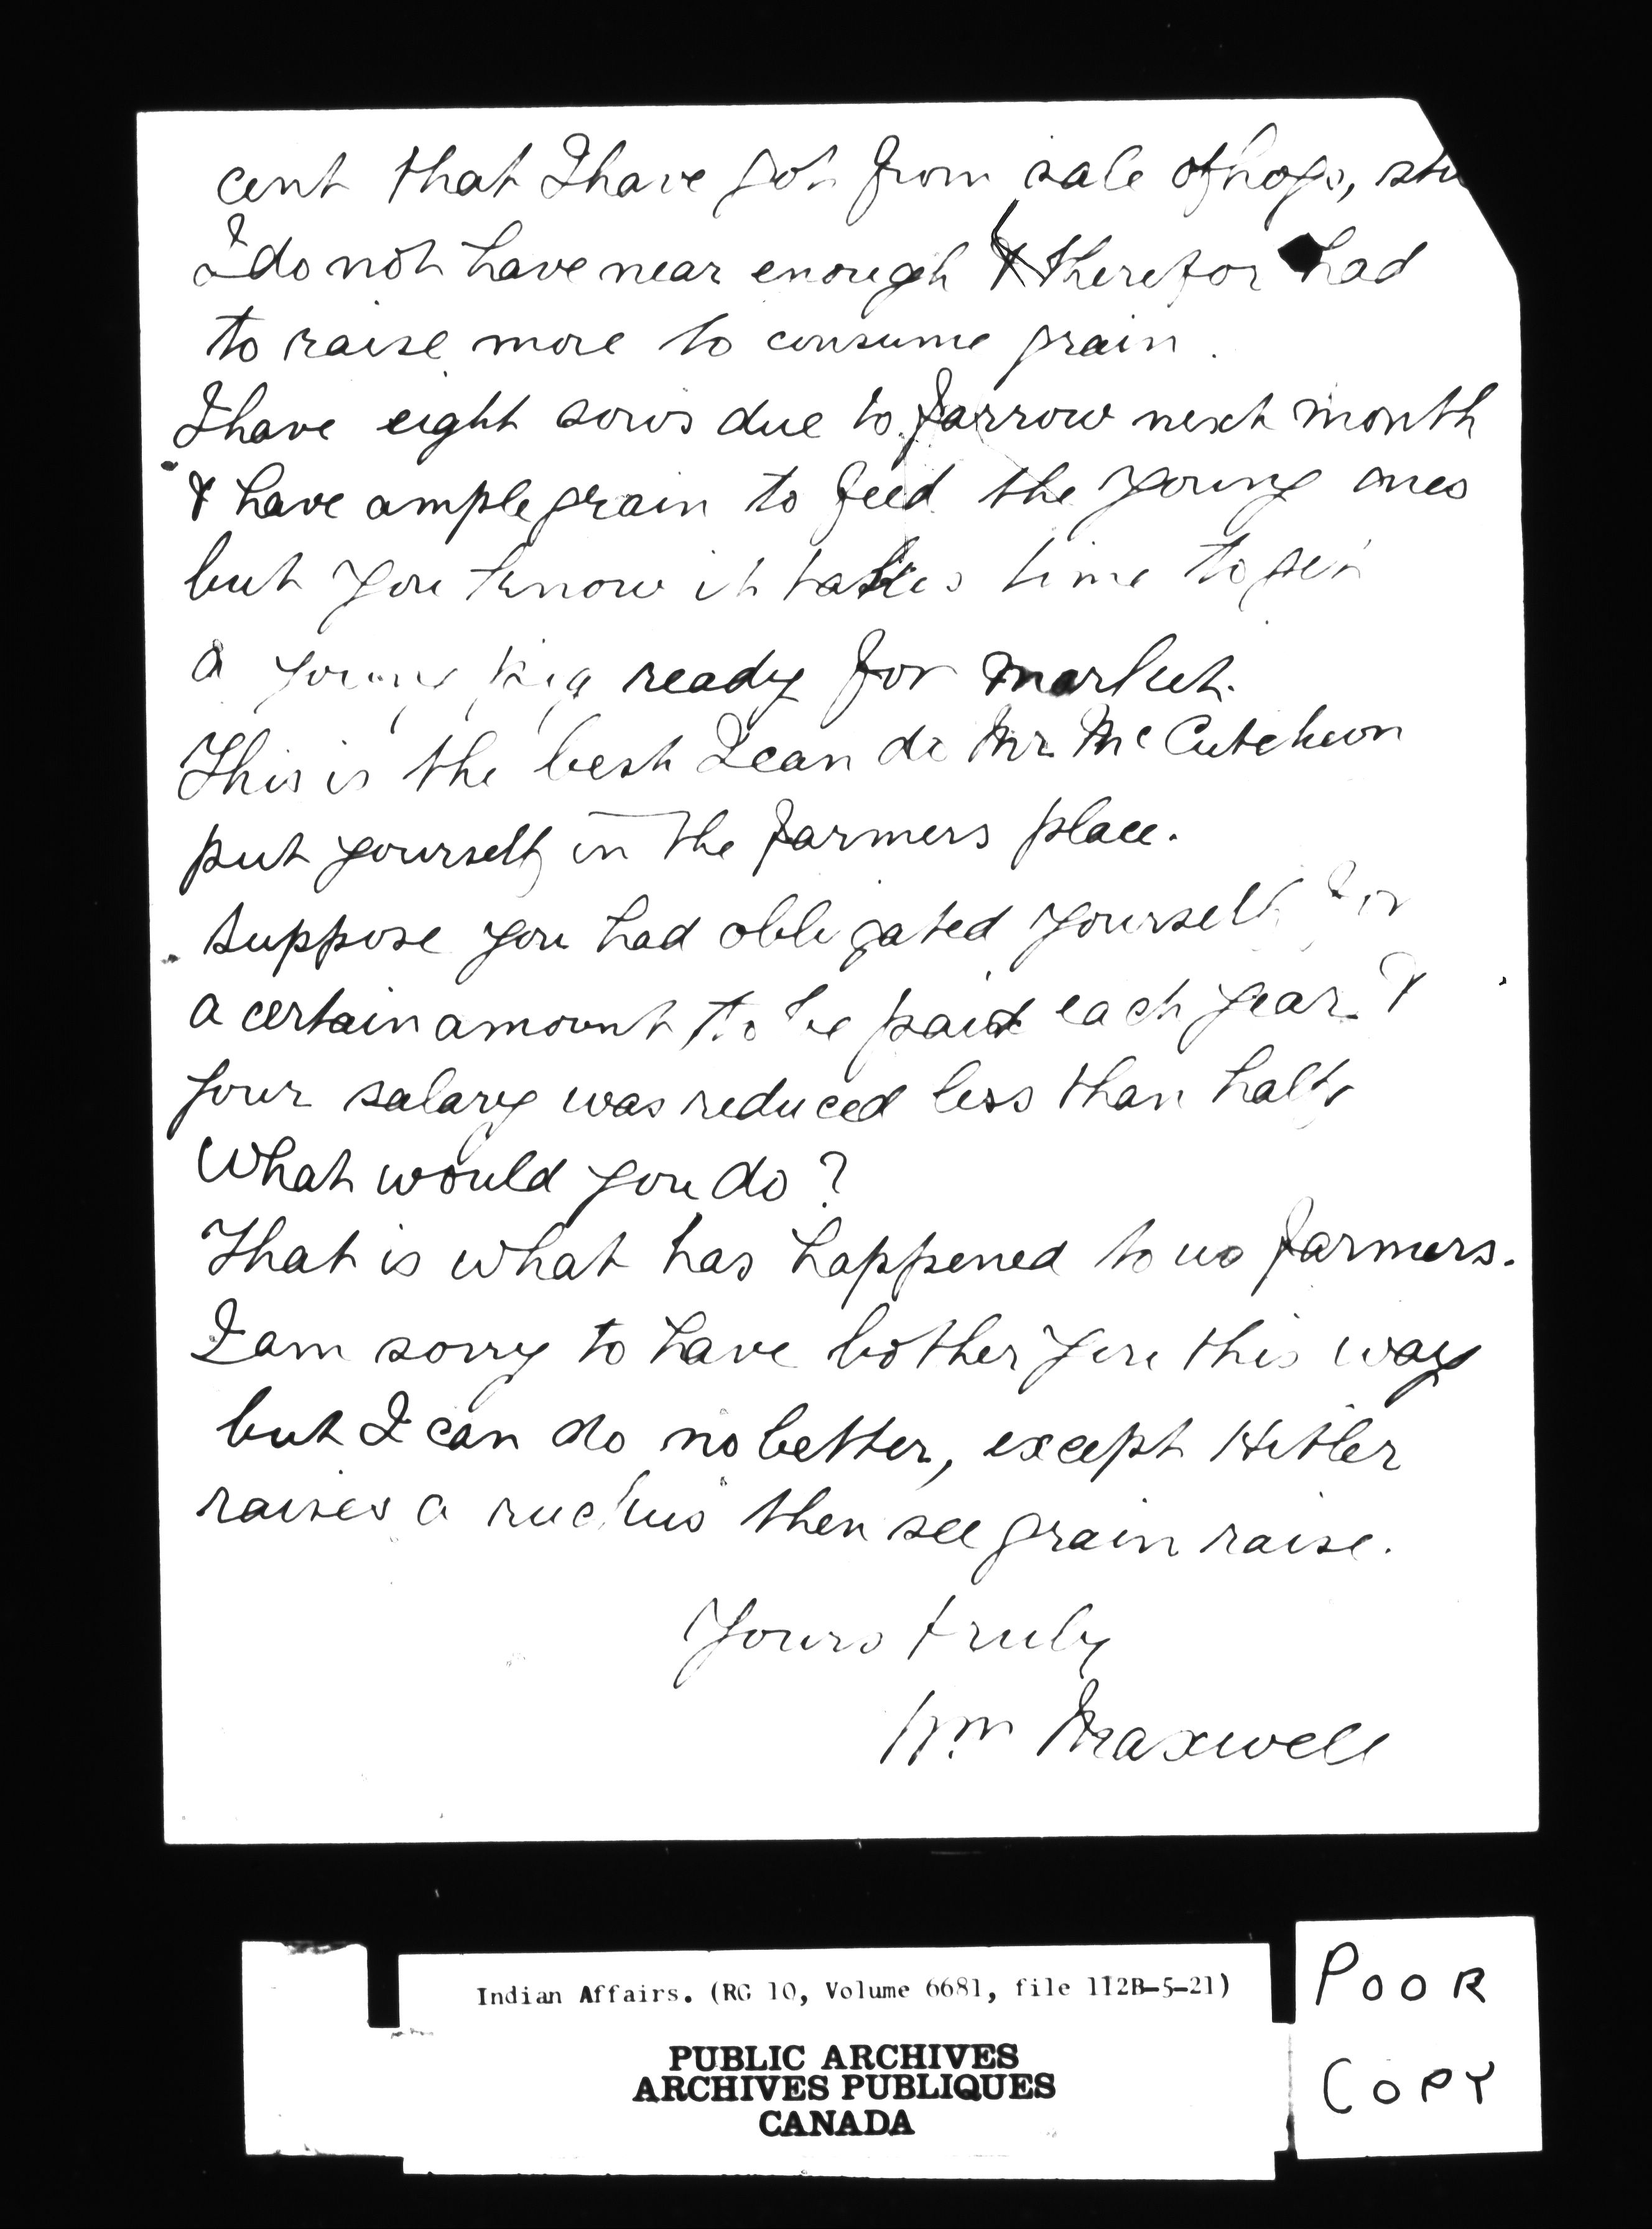 cent that I have got from sale of hogs,
I do not have near enough & therefor had
to raise more to consume grain.
I have eight sows due to farrow next month
& have ample grain to feed the young ones
but you know it takes time to get
a young pig ready for market.
This is the best I can do Mr. McCutcheon
put yourself in the farmers place.
suppose you had obligated yourself for
a certain amount to be paid each year &
your salary was reduced less than half,
What would you do?
That is what has happened to us farmers.
I am sorry to have bother you this way
but I can do no better, except Hitler
raises a ruckus then see grain raise.
Yours truly
Wm Maxwell
Indian Affairs. (RG 10, Volume 6681, file 112B-5-21)
PUBLIC ARCHIVES
ARCHIVES PUBLIQUES
CANADA
POOR
COPY